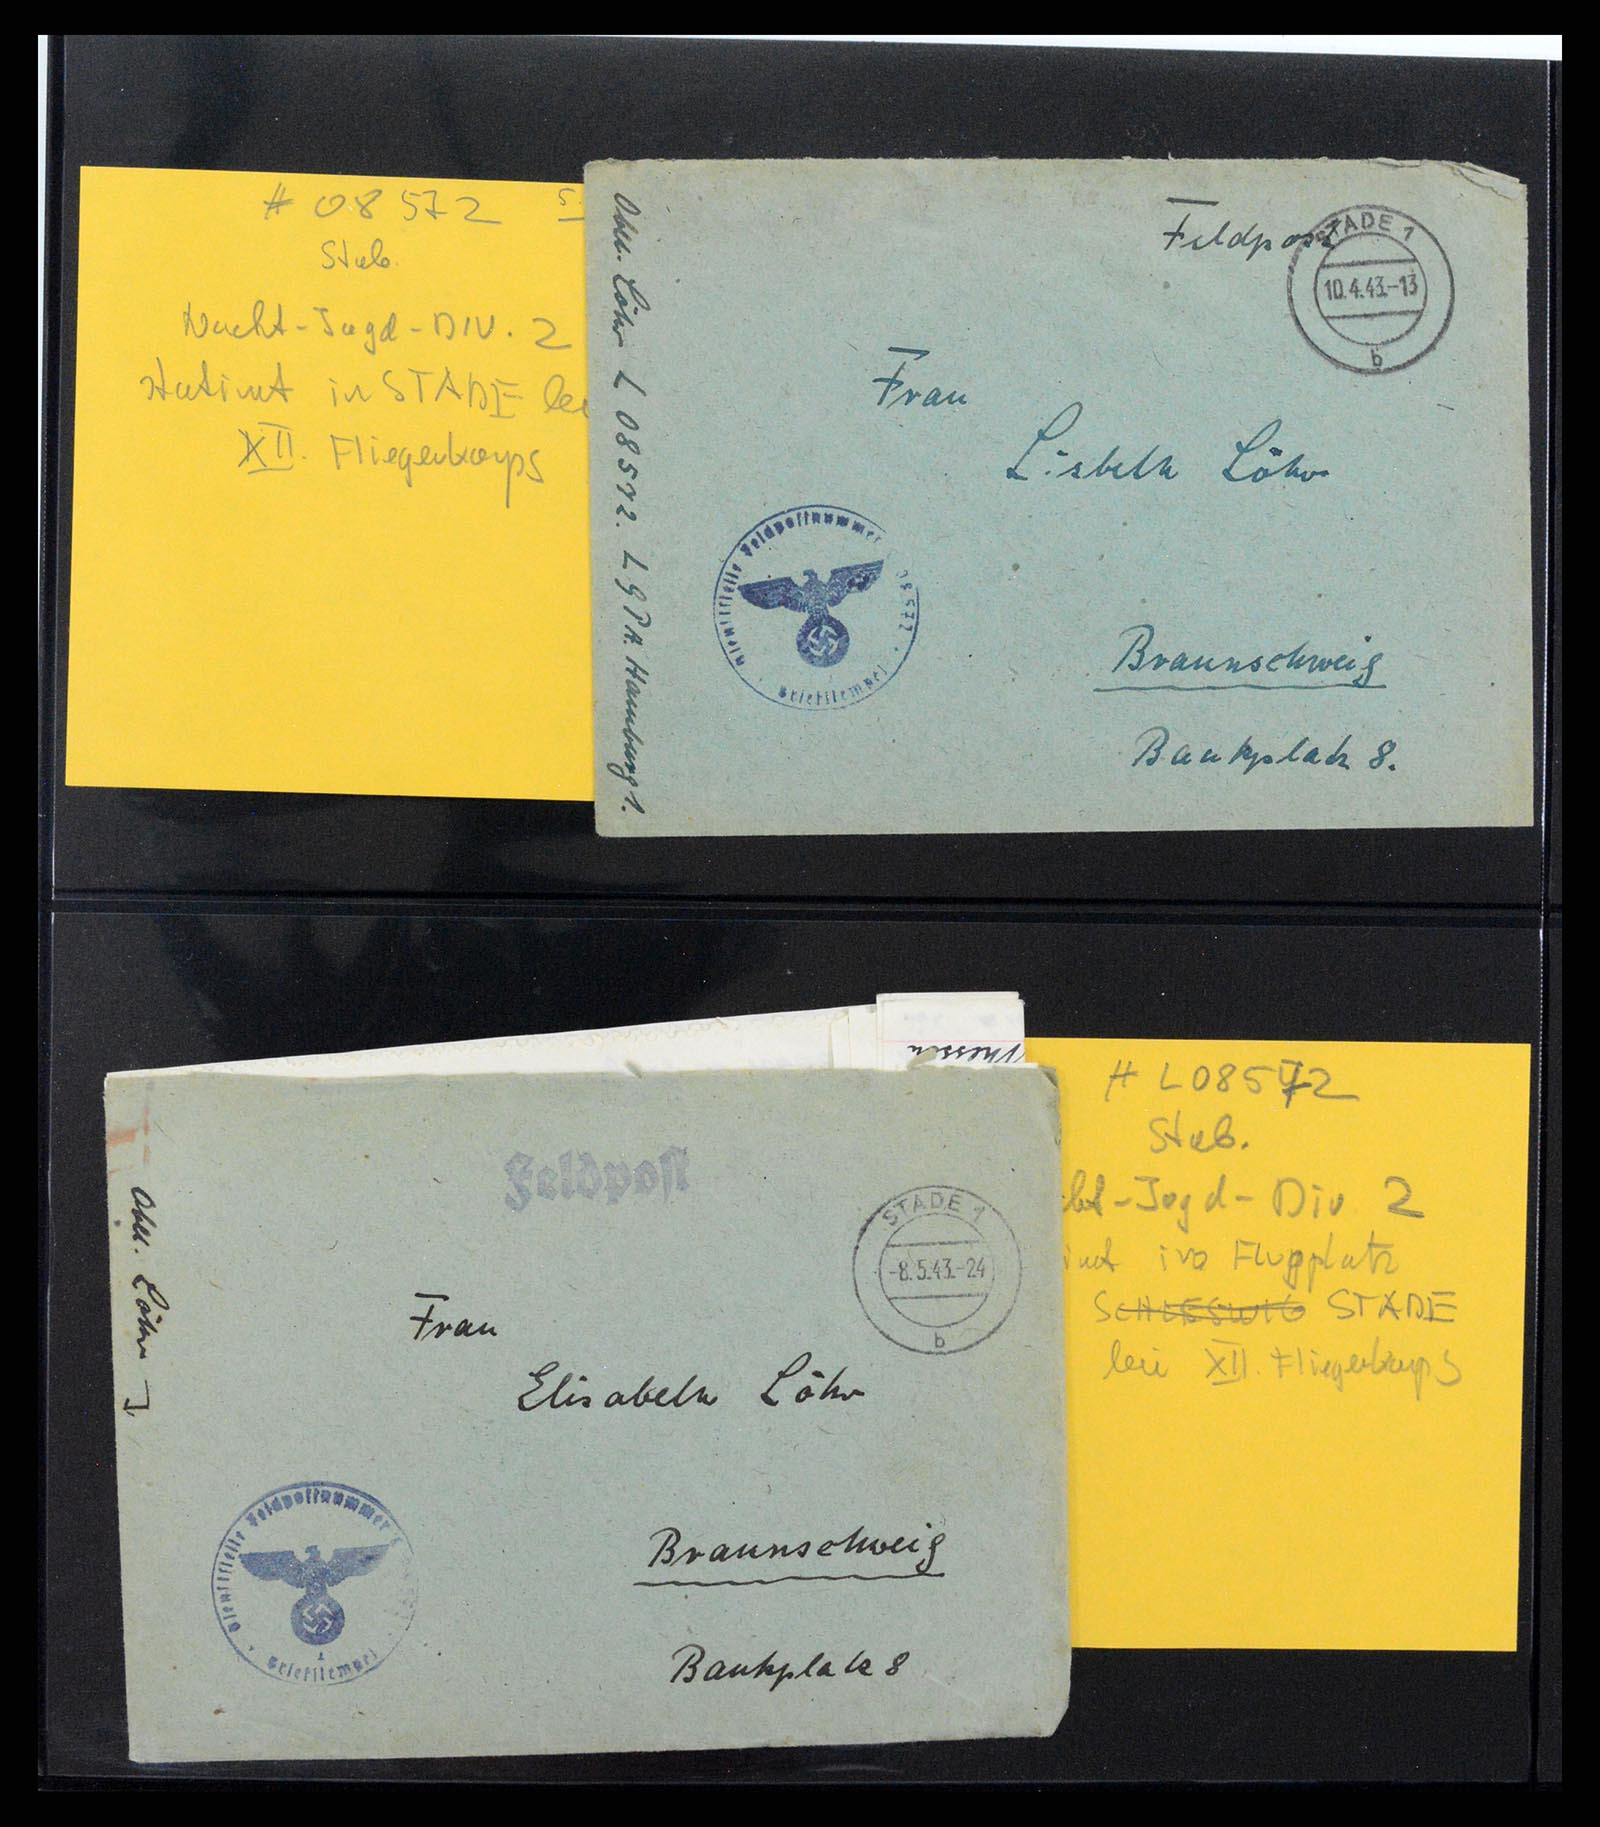 # 08572 S.
Stab.
Nacht-Jagd-DIV. 2
stat. mit in STADE bei
XII. Fliegerkorps
Ober. Löhr L 08572. L G P A. Hamburg 1.
Feldpost
STADE 1
10.4.43.-13
b
Frau
Lisbeth Löhr
Braunschweig
Bankplatz 8.
Dienststelle Feldpostnummer 08572
Briefstempel
# L08572
Stab.
Jagd-Div 2
Flugplatz
SCHLESWIG STADE
bei XII. Fliegerkorps
Feldpost
STADE 1
-8.5.43.-24
b
Ober. Löhr
Frau
Elisabeth Löhr
Braunschweig
Bankplatz 8
Dienststelle Feldpostnummer
Briefstempel